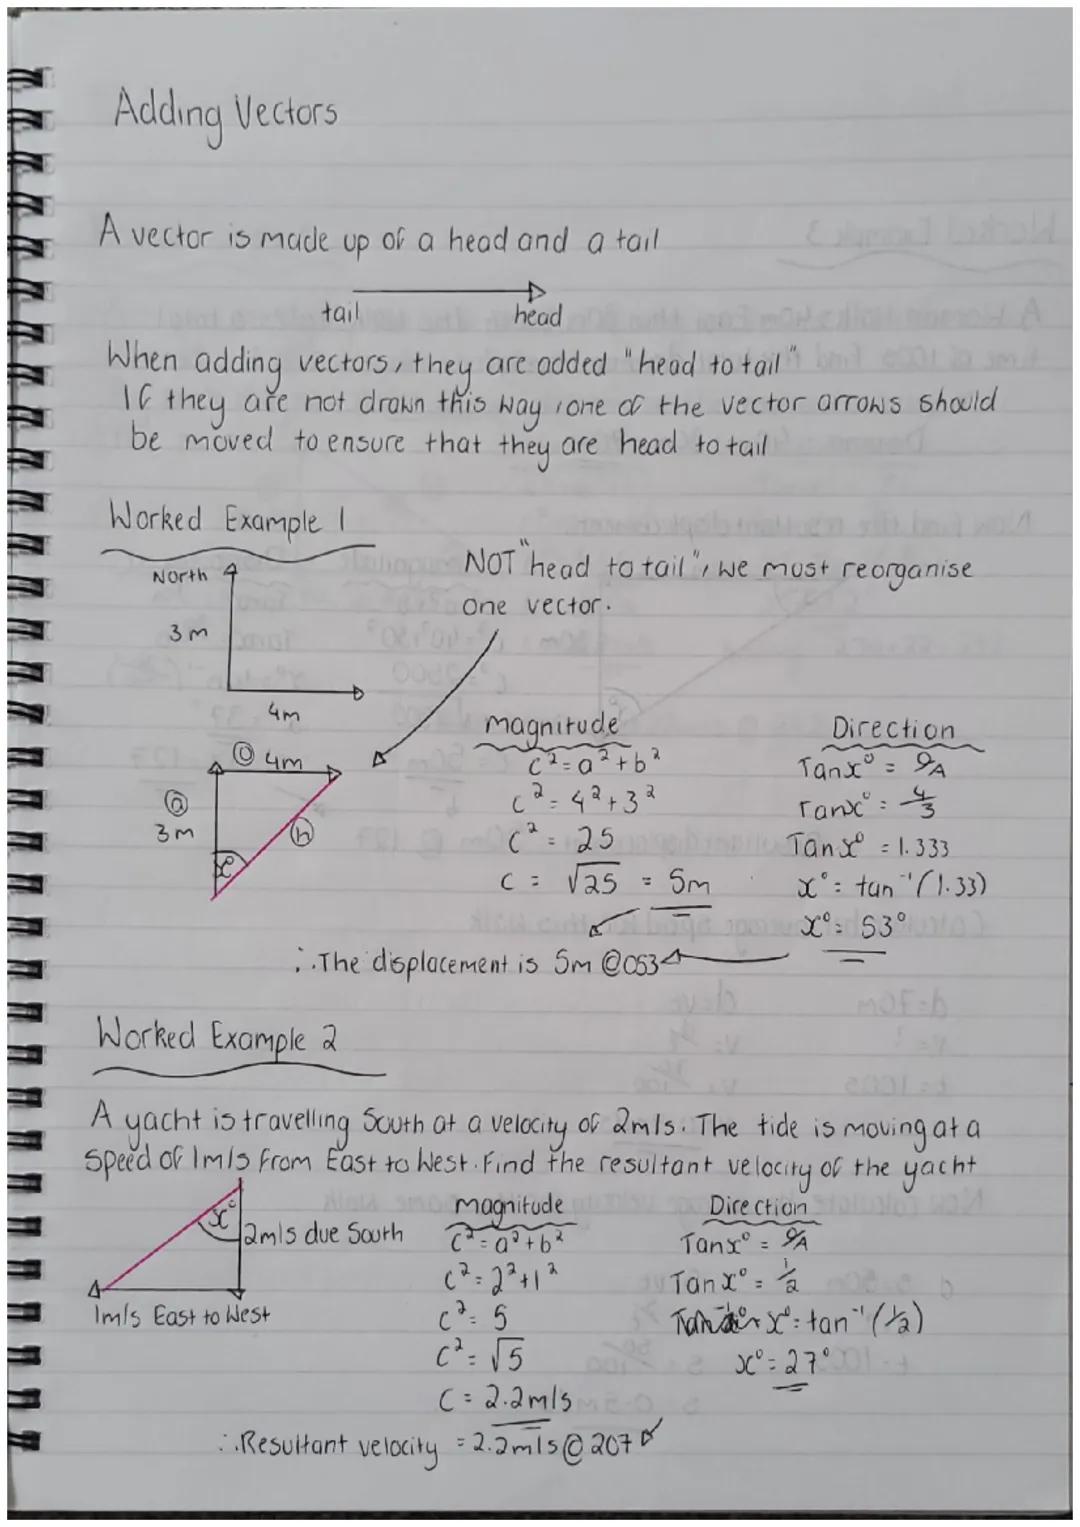 Adding Vectors
A vector is made up of a head and a tail
tail head
When adding vectors, they are added "head to tail"
If they are not drawn this way, one of the vector arrows should
be moved to ensure that they are head to tail
Worked Example 1
North
3m
4m
NOT "head to tail", we must reorganise
one vector.
O 4m
a
3m
h
x°
magnitude
c² = a² + b²
c² = 4² + 3²
c² = 25
c = √25 = 5m
Direction
Tanx° = O/A
Tanx° = 4/3
Tanx° = 1.333
x° = tan⁻¹(1.33)
x° = 53°
∴ The displacement is 5m @053
Worked Example 2
A yacht is travelling South at a velocity of 2m/s. The tide is moving at a
speed of 1m/s from East to West. Find the resultant velocity of the yacht
x°
2m/s due South
1m/s East to West
magnitude
c² = a² + b²
c² = 2² + 1²
c² = 5
c² = √5
c = 2.2m/s
Direction
Tanx° = O/A
Tanx° = 1/2
x° = tan⁻¹(1/2)
x° = 27°
∴ Resultant velocity = 2.2m/s @ 207